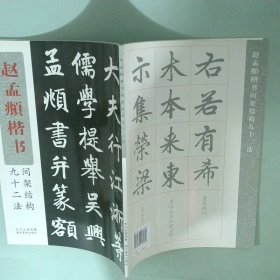 赵孟頫楷书
间架结构
九十二法
大夫行江浙
儒學提舉吳興
孟頫書并篆額
右若有希
木本来東
示集榮梁
赵孟頫楷书间架结构九十二法